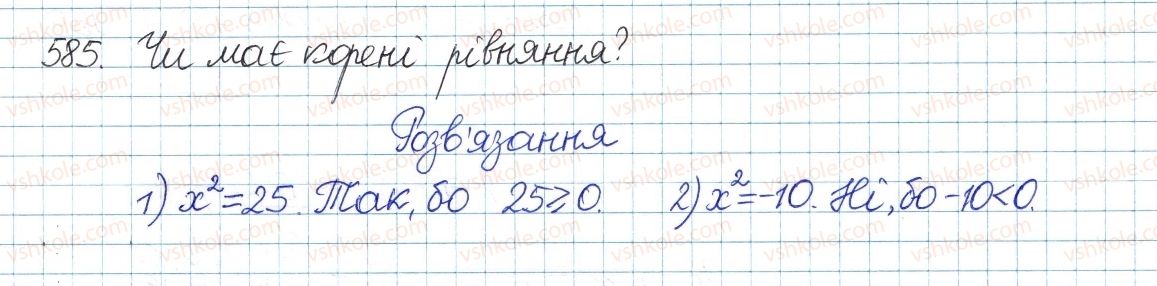 585. Чи має корені рівняння?
Розв'язання
1) x²=25. Так, бо 25⩾0. 2) x²=-10. Ні, бо -10<0.
vshkole.com